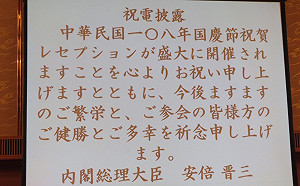 祝電披露
中華民国一〇八年国慶節祝賀
レセプションが盛大に開催され
ますことを心よりお祝い申し上
げますとともに、今後ますます
のご繁栄と、ご参会の皆様方の
ご健勝とご多幸を祈念申し上げ
ます。
内閣総理大臣　安倍 晋三